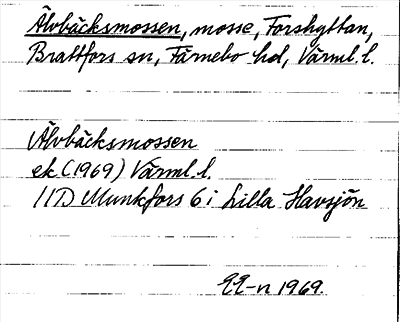 Älvbäcksmossen, mosse, Forshyttan,
Brattfors sn, Färnebo hd, Värml. l.
Älvbäcksmossen
ek (1969) Värml. l.
11D Munkfors 6 i Lilla Havsjön
1969.